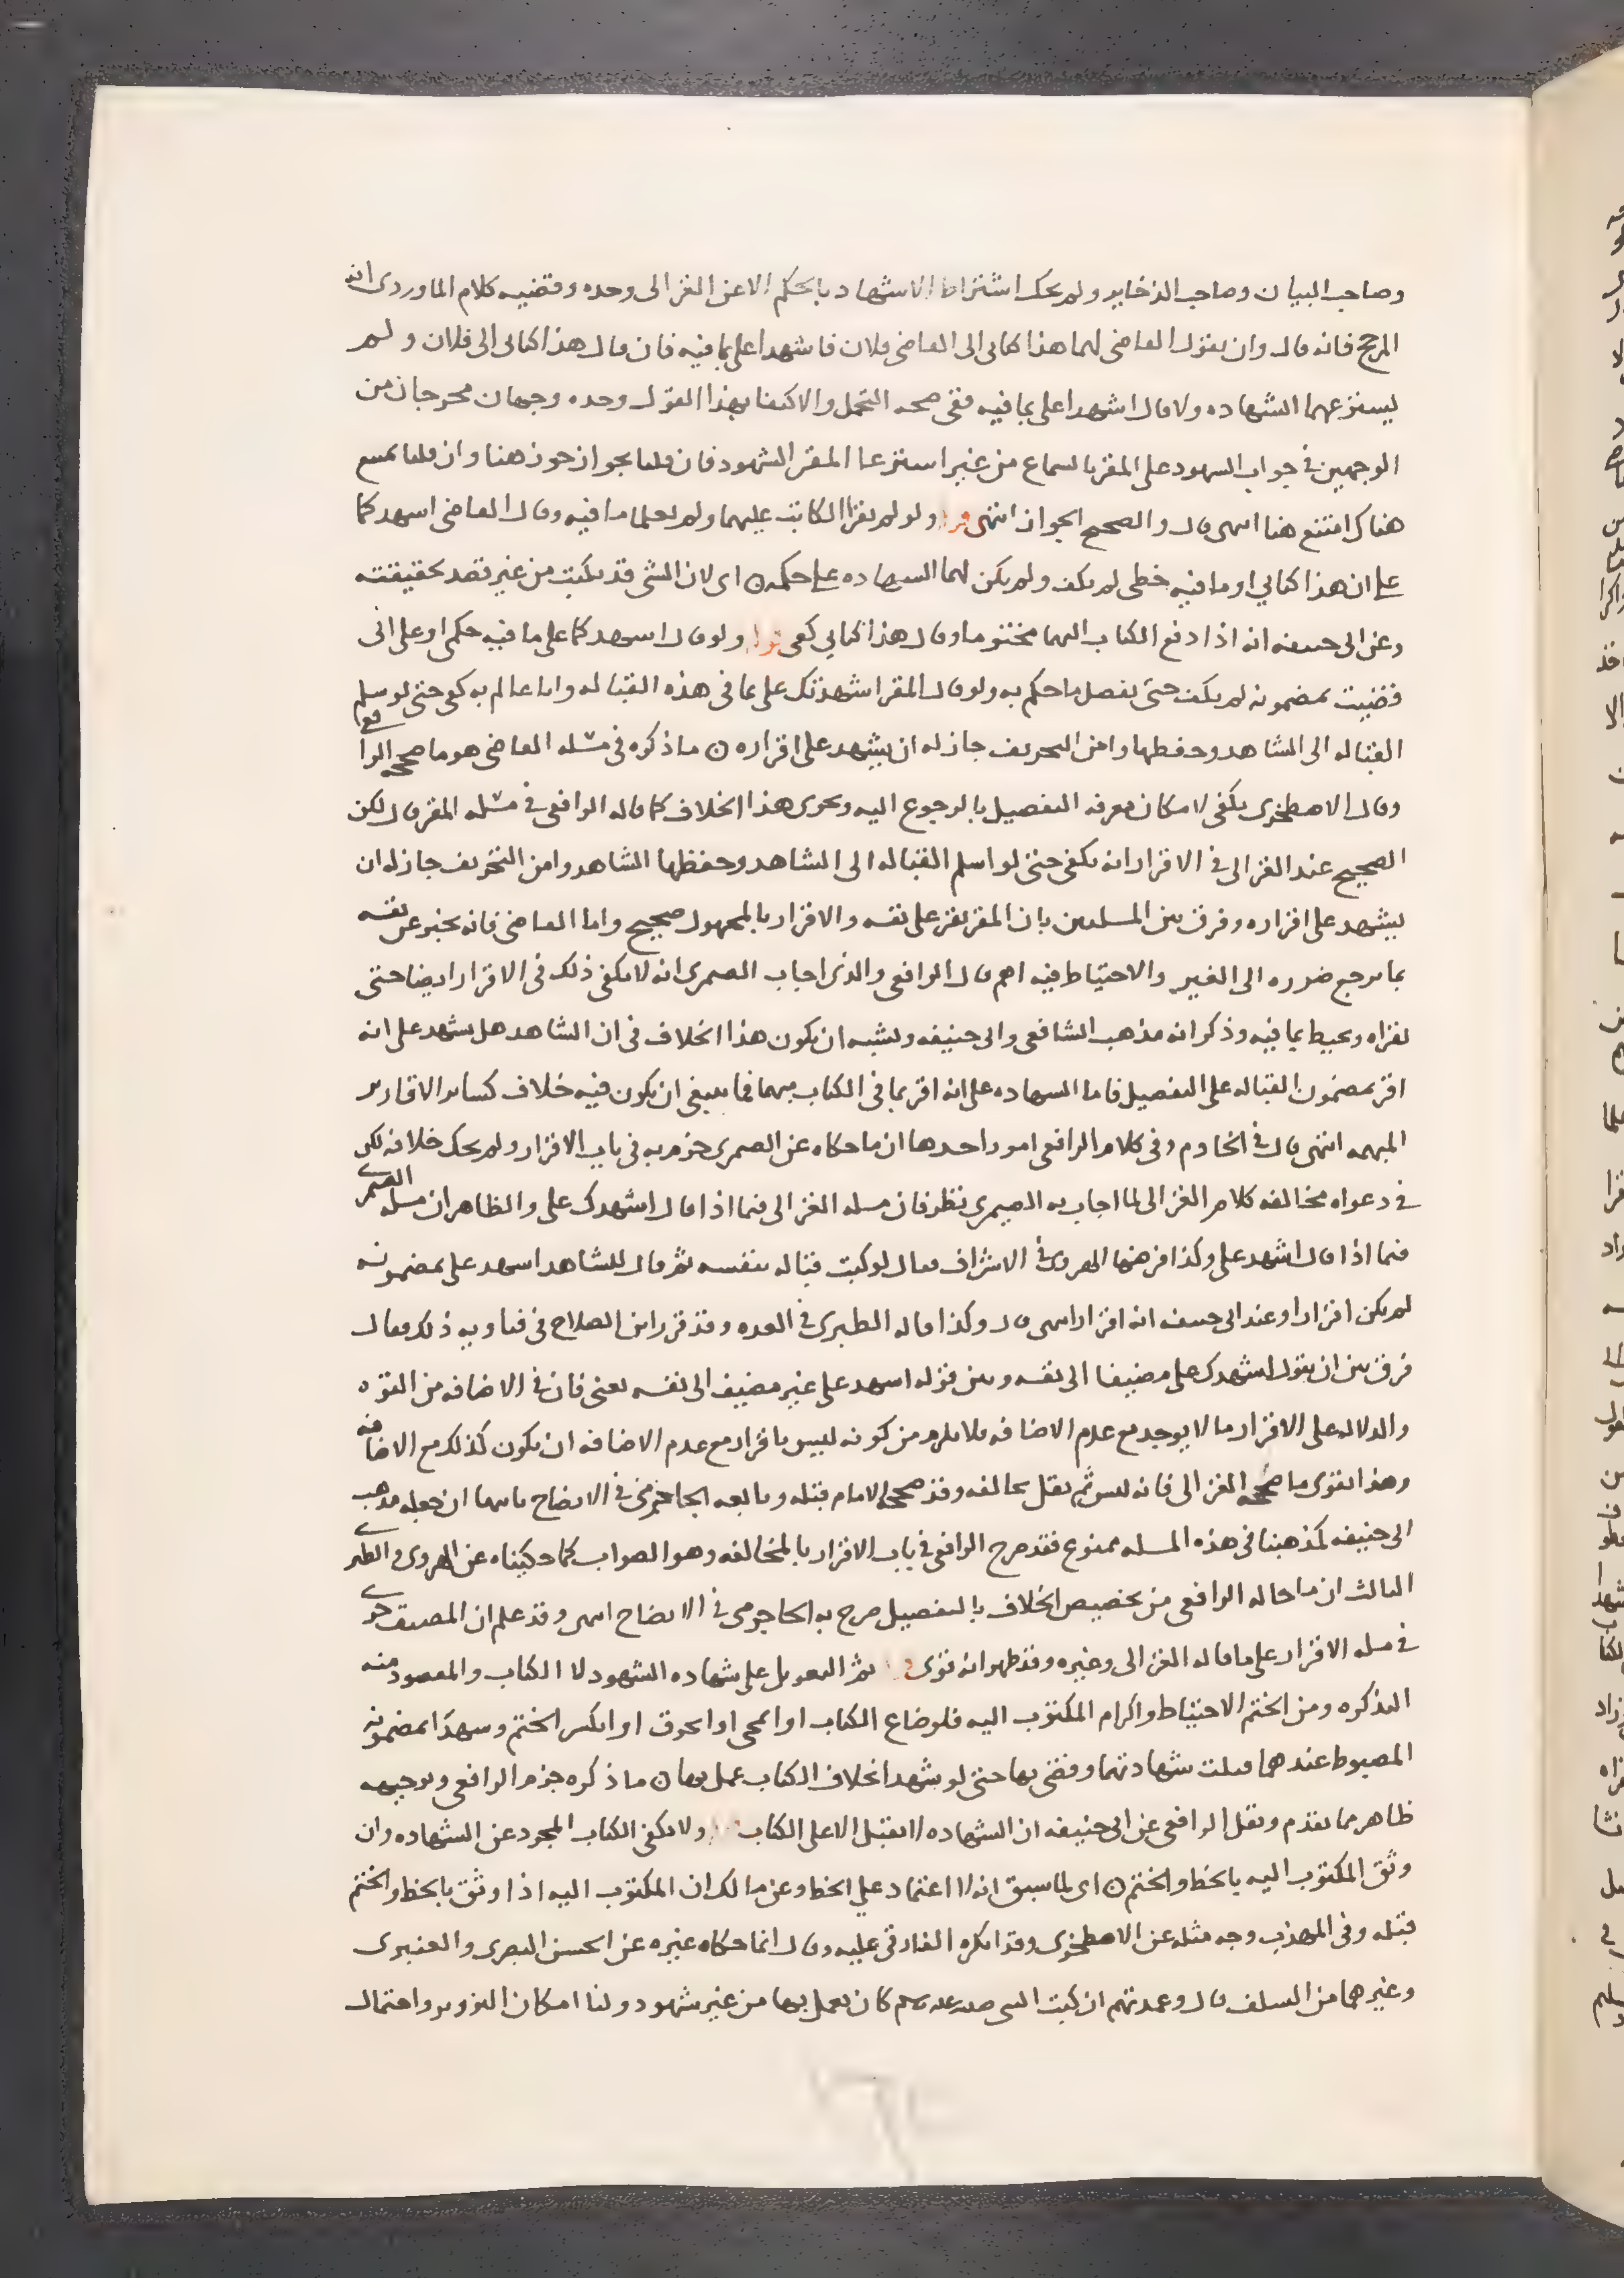 وصاحب البيان وصاحب الذخاير ولم يحك اشتراط الاشهاد بالحكم الا عن الغزالى وحده وقضيه كلام الماوردى انه
المرجح فانه قال وان يقول القاضى لهما هذا كتابى الى القاضى فلان فاشهدا على بما فيه فان قال هذا كتابى الى فلان ولم
يسترعهما الشهاده ولا قال اشهدا على بما فيه ففى صحه التحمل والاكتفا بهذا القول وحده وجهان مخرجان من
الوجهين فى جواب الشهود على المقر بالسماع من غير استرعا المقر الشهود فان قلنا بجوازه جوز هنا وان قلنا يمنع
هناك امتنع هنا انتهى قال والصحيح الجواز انتهى ولو لم يقرا الكاتب عليهما ولم يعلما ما فيه وقال القاضى اشهدكما
على ان هذا كتابي او ما فيه خطى لم يكف ولم يكن لهما الشهاده على حكمه ن اى لان الشى قد يكتب من غير قصد تحقيقته
وعن ابى حنيفه انه اذا دفع الكتاب اليهما مختوما وقال هذا كتابي كفى ولو قال اشهدكما على ما فيه حكمى او على انى
قضيت بمضمونه لم يكف حتى يفصل ما حكم به ولو قال المقر اشهدتك على بما فى هذه القباله وانا عالم به كفى حتى لو سلم
القباله الى الشاهد وحفظها وامن التحريف جاز له ان يشهد على اقراره ن ما ذكره فى مسله القاضى هو ما صححه الرافعى
وقال الاصطخرى يكفى لامكان معرفه التفصيل بالرجوع اليه ويجرى هذا الخلاف كما قاله الرافعى فى مسله المقر قال لكن
الصحيح عند الغزالى فى الاقرار انه يكفى حتى لو اسلم القباله الى الشاهد وحفظها الشاهد وامن التحريف جاز له ان
يشهد على اقراره وفرق بين المسلتين بان المقر يقر على نفسه والاقرار بالمجهول صحيح واما القاضى فانه يخبر عن نفسه
بما يرجع ضرره الى الغير والاحتياط فيه اهم قال الرافعى والذى اجاب الصيمرى انه لا يكفى ذلك فى الاقرار ايضا حتى
يقراه ويحيط بما فيه وذكر انه مذهب الشافعى وابى حنيفه ويشبه ان يكون هذا الخلاف فى ان الشاهد هل يشهد على انه
اقر بمضمون القباله على التفصيل فاما الشهاده على انه اقر بما فى الكتاب مبهما فما ينبغى ان يكون فيه خلاف كساير الاقارير
المبهمه انتهى قال فى الخادم وفى كلام الرافعى امور احدها ان ما حكاه عن الصيمرى جزم به فى باب الاقرار ولم يحك خلافه لكن
فى دعواه مخالفه كلام الغزالى لما اجاب به الصيمرى نظر فان مسله الغزالى فيما اذا قال اشهدك على والظاهر ان مسله الصيمرى
فيما اذا قال اشهد على وكذا فرضها الهروى فى الاشراف فقال لو كتب قباله بنفسه ثم قال للشاهد اشهد على بمضمونه
لم يكن اقرارا وعند ابى حنيفه انه اقرار انتهى قال وكذا قاله الطبرى فى العده وقد قرر ابن الصلاح فى فتاويه ذلك فقال
فرق بين ان يقول اشهدك على مضيفا الى نفسه وبين قوله اشهد على غير مضيف الى نفسه يعنى فان فى الاضافه من القوه
والدلاله على الاقرار ما لا يوجد مع عدم الاضافه فلا يلزم من كونه ليس باقرار مع عدم الاضافه ان يكون كذلك مع الاضافه
وهذا يقوى ما صححه الغزالى فانه ليس ثم نقل يخالفه وقد صححه الامام قبله وتابعه الجاجرمى فى الايضاح ثانيها ان جعله مذهب
ابى حنيفه كمذهبنا فى هذه المسله ممنوع فقد صرح الرافعى فى باب الاقرار بالمخالفه وهو الصواب كما حكيناه عن الهروى والطبرى
الثالث ان ما حاله الرافعى من تخصيص الخلاف بالتفصيل صرح به الجاجرمى فى الايضاح انتهى وقد علم ان المصنف جرى
فى مسله الاقرار على ما قاله الغزالى وغيره وقد ظهر انه قوى ثم التعويل على شهاده الشهود لا الكتاب والمقصود منه
التذكره ومن الختم الاحتياط واكرام المكتوب اليه فلو ضاع الكتاب او امحى او احترق او انكسر الختم وشهدا بمضمونه
المضبوط عندهما قبلت شهادتهما وقضى بها حتى لو شهدا بخلاف الكتاب عمل بها ن ما ذكره جزم الرافعى وتوجيهه
ظاهر مما تقدم ونقل الرافعى عن ابى حنيفه ان الشهاده لا تقبل الا على الكتاب ولا يكفى الكتاب المجرد عن الشهاده وان
وثق المكتوب اليه بالخط والختم ن اى لما سبق انه لا اعتماد على الخط وعن مالك ان المكتوب اليه اذا وثق بالخط والختم
قبله وفى المهذب وجه مثله عن الاصطخرى وقد انكره الفارقى عليه وقال انما حكاه غيره عن الحسن البصرى والعنبرى
وغيرهما من السلف قال وعمدتهم ان كتب النبى صلى الله عليه وسلم كان يعمل بها من غير شهود ولنا امكان التزوير واحتمال